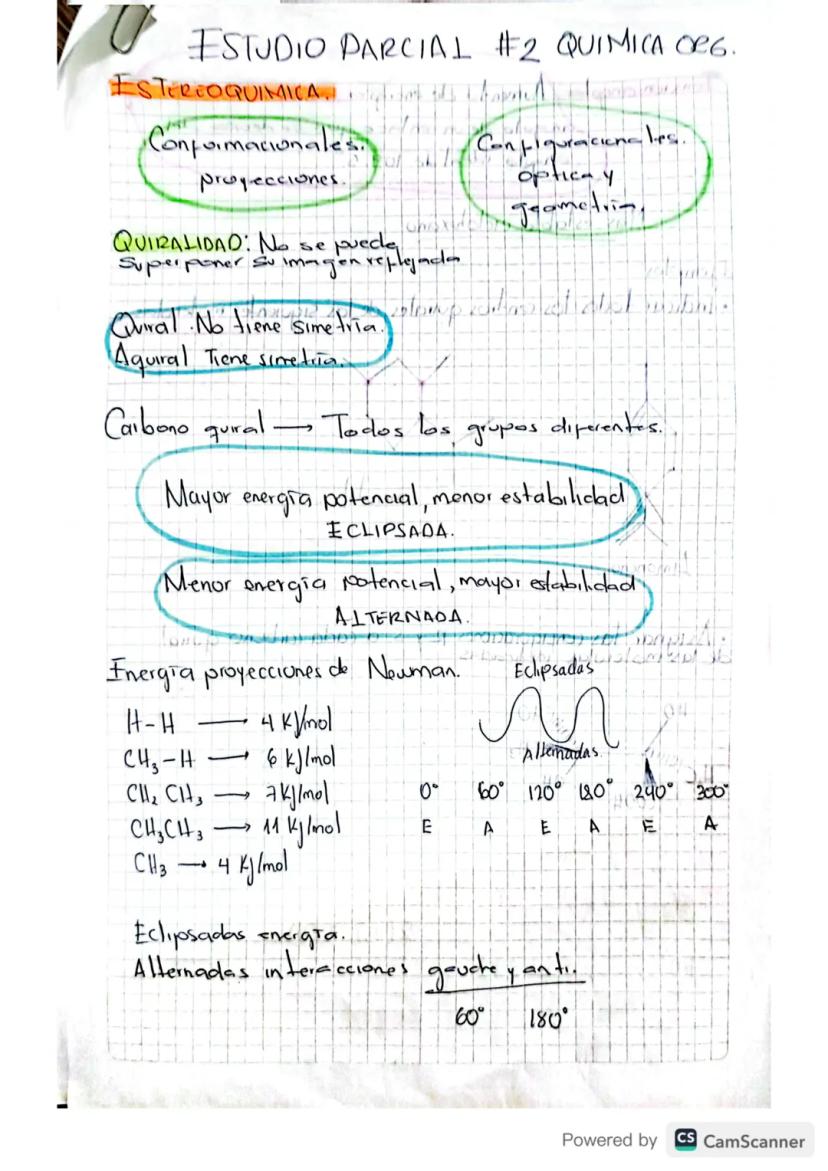 ESTUDIO PARCIAL #2 QUIMICA ORG.
ESTEREOQUIMICA.
Conformacionales.
proyecciones.
Configuracionales.
óptica y
geometría,
QUIRALIDAD: No se puede
superponer su imagen reflejada
Quiral. No tiene simetría.
Aquiral Tiene simetría.
Carbono quiral → Todos los grupos diferentes.
Mayor energía potencial, menor estabilidad
ECLIPSADA.
Menor energía potencial, mayor estabilidad
ALTERNADA.
Energía proyecciones de Newman.
Eclipsadas
Alternadas.
H-H → 4 KJ/mol
CH₃-H → 6 KJ/mol
CH₂ CH₃ → 7 KJ/mol
CH₃CH₃ → 11 KJ/mol
CH₃ → 4 KJ/mol
0° 60° 120° 180° 240° 300°
E A E A E A
Eclipsadas energía.
Alternadas interacciones gauche y anti.
60° 180°
Powered by CS CamScanner